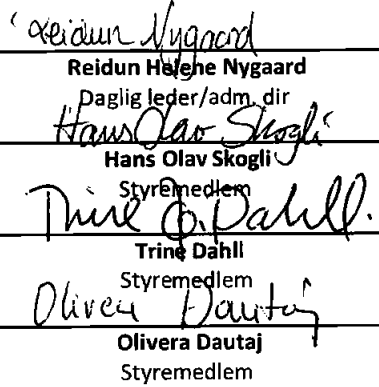 Reidun Nygaard
Reidun Helene Nygaard
Daglig leder/adm. dir
Hans Olav Skogli
Hans Olav Skogli
Styremedlem
Trine Dahli
Styremedlem
Olivera Dautaj
Olivera Dautaj
Styremedlem